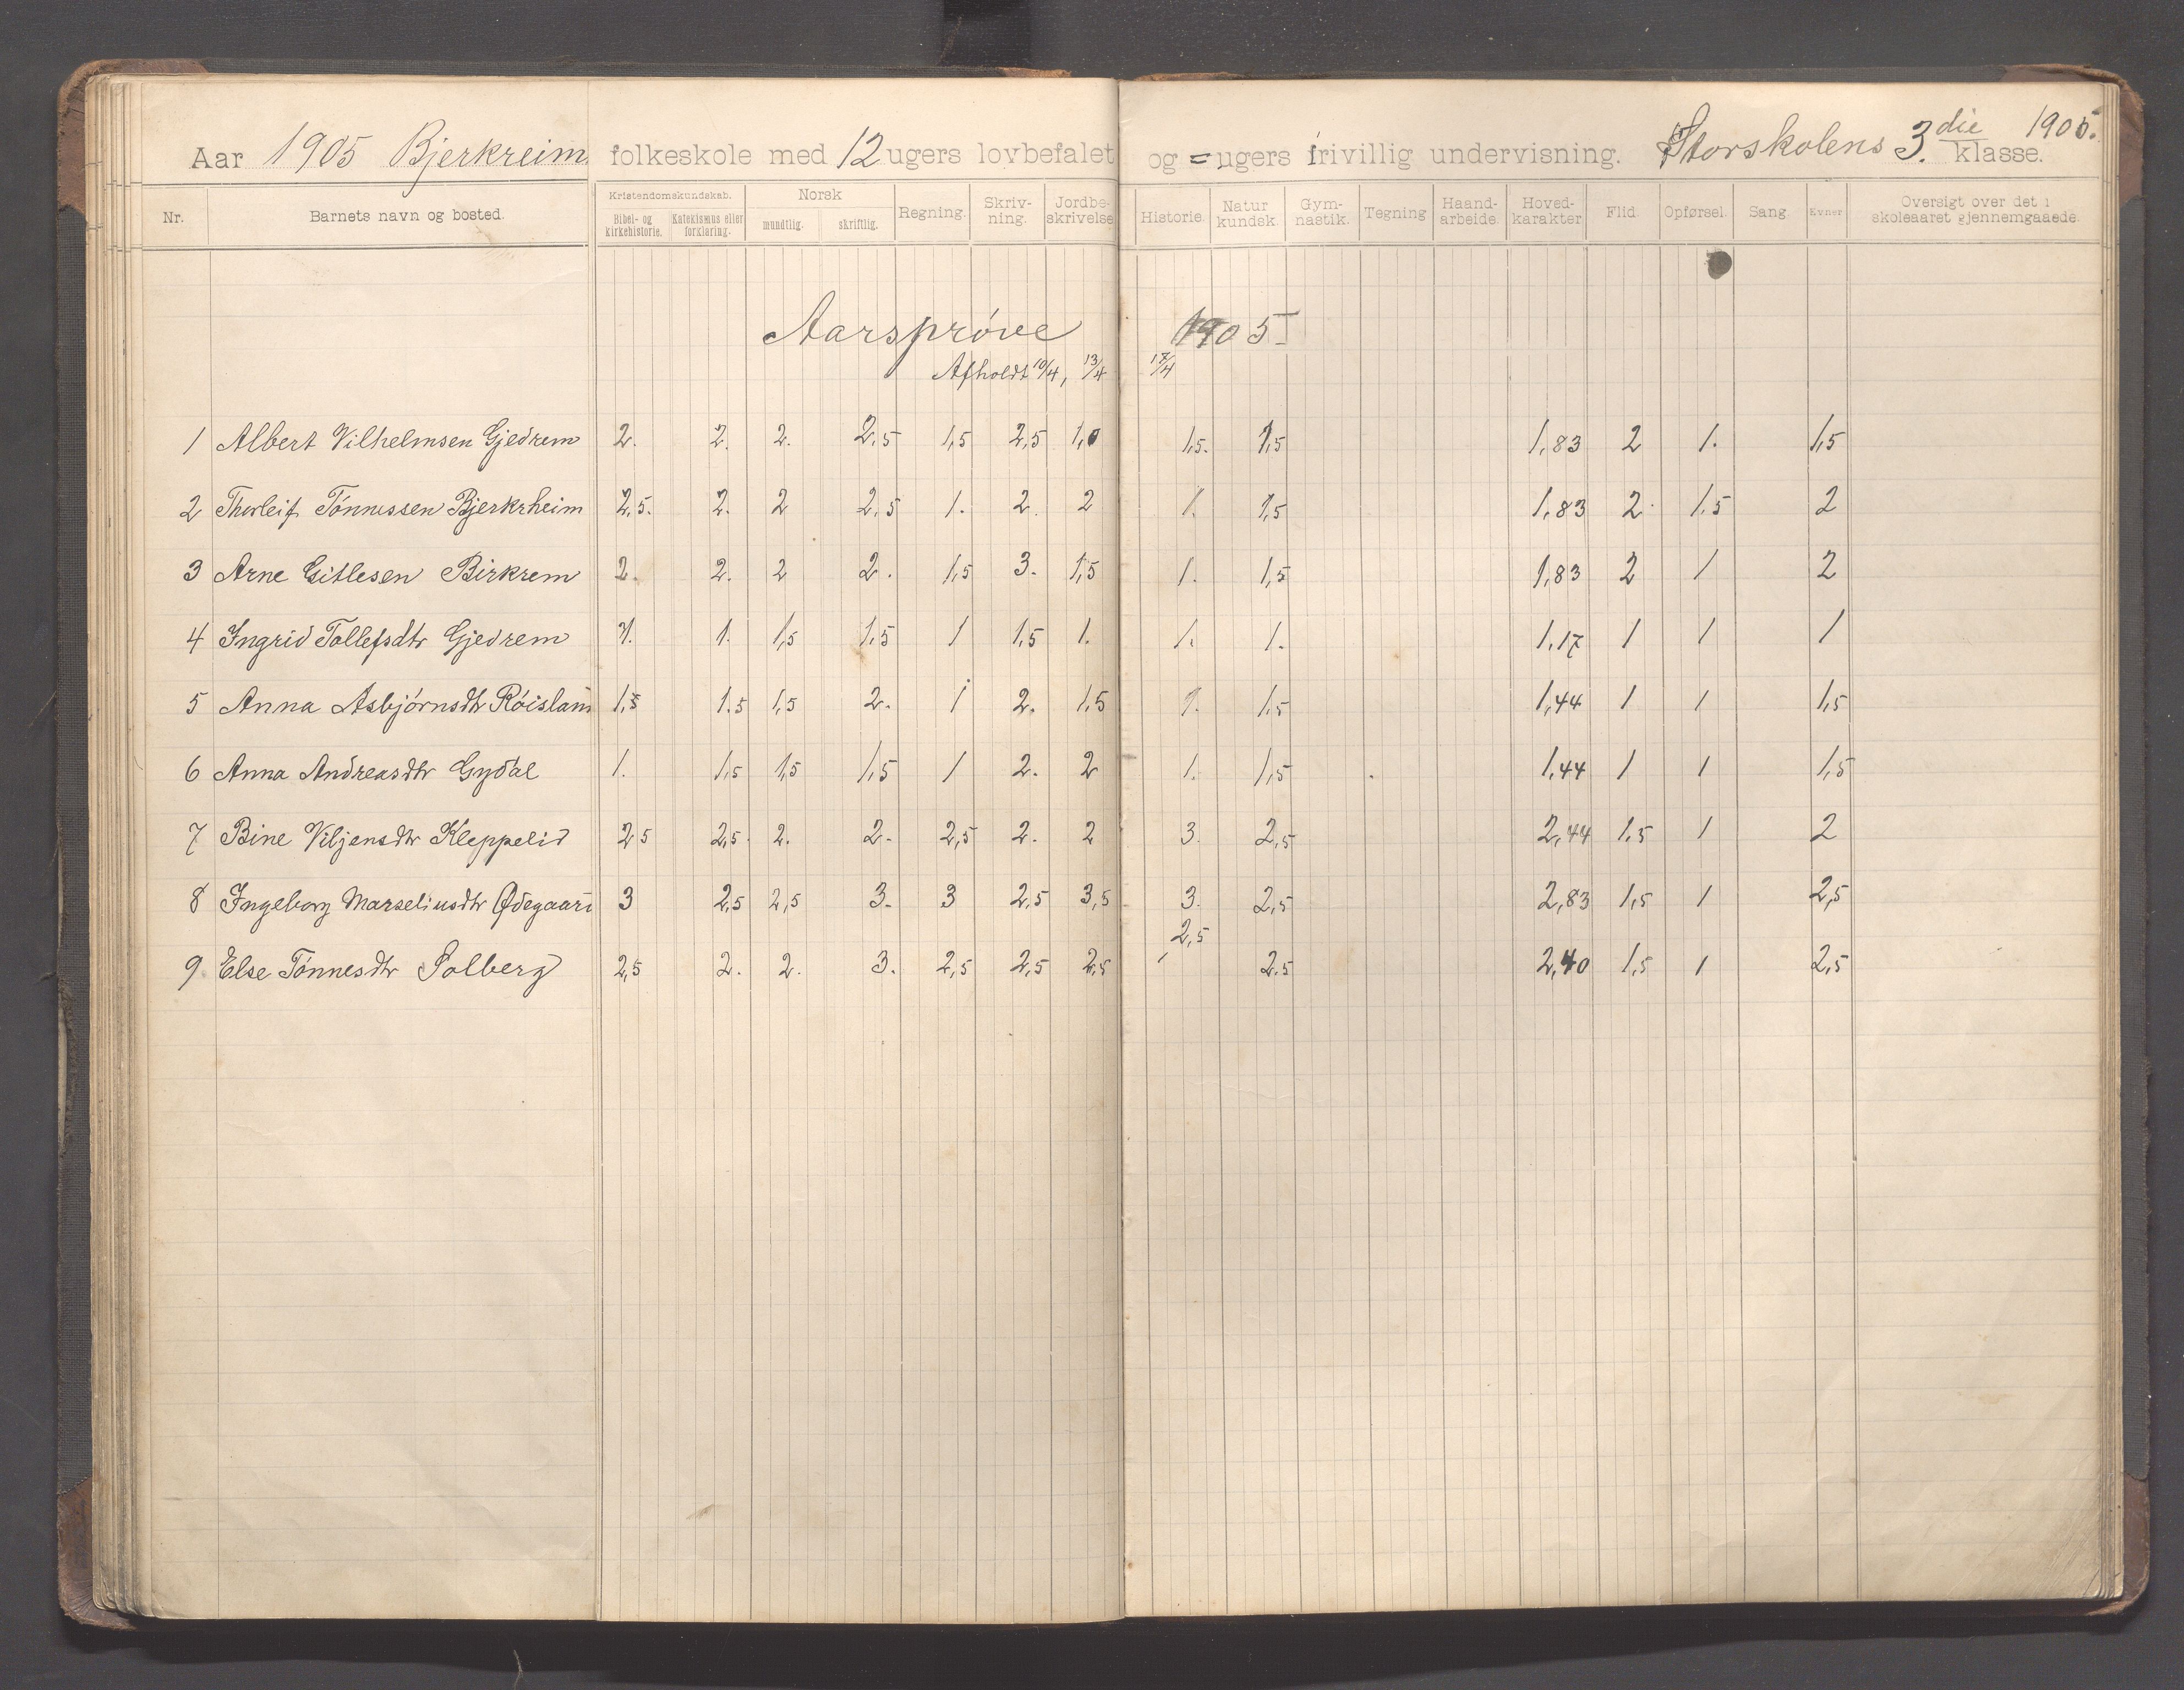 Aar 1905 Bjerkreim folkeskole med 12 ugers lovbefalet og = ugers frivillig undervisning. Storskolens 3.die klasse. 1905.
Nr. Barnets navn og bosted. Kristendomskundskab. Bibel- og kirkehistorie. Katekismus eller forklaring. Norsk mundtlig. skriftlig. Regning. Skriv-ning. Jordbe-skrivelse Historie. Natur kundsk. Gym-nastik. Tegning Haand-arbeide. Hoved-karakter Flid. Opførsel. Sang. Evner Oversigt over det i skoleaaret gjennemgaaede.
Aarsprøve 1905
Afholdt 10/4, 13/4 17/4
1 Albert Vilhelmsen Gjedrem 2. 2. 2. 2,5 1,5 2,5 1,0 1,5. 1,5 1,83 2 1. 1,5
2 Thorleif Tönnessen Bjerkrheim 2,5. 2. 2 2,5 1. 2. 2 1. 1,5 1,83 2 1.5 2
3 Arne Gitlesen Birkrem 2. 2. 2 2. 1,5 3. 1,5 1. 1,5 1,83 2 1 2
4 Ingrid Tollefsdtr Gjedrem 1. 1. 1,5 1,5 1 1,5 1. 1. 1. 1,17 1 1 1
5 Anna Asbjörnsdtr Röisland 1,5 1.5 1,5 2. 1 2. 1,5 1. 1,5 1,44 1 1 1,5
6 Anna Andreasdtr Gydal 1. 1,5 1,5 1,5 1 2. 2 1. 1,5 1,44 1 1 1,5
7 Bine Viljensdtr Kleppelid 2 5 2,5. 2. 2. 2,5 2. 2 3. 2,5 2,44 1,5 1 2
8 Ingeborg Marseliusdtr Ødegaard 3 2,5 2,5 3. 3 2,5 3,5 3. 2,5 2,83 1,5 1 2,5
9 Else Tönnesdtr Solberg 2,5 2. 2. 3. 2,5 2,5 2,5 2,5 2.5 2,40 1,5 1 2,5